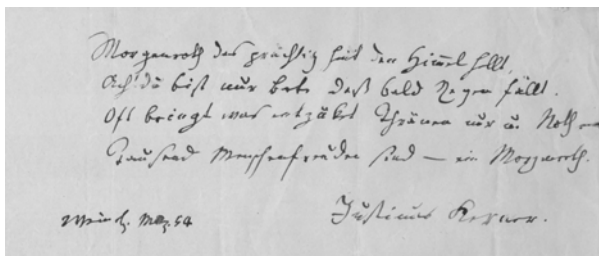 Morgenroth das prächtig heut den Himmel hellt,
Ach! du bist nur Bote daß bald Regen fällt.
Oft bringt was entzüket Thränen nur u. Noth
Tausend Menschenfreuden sind — ein Morgenroth.
54
Justinus Kerner.